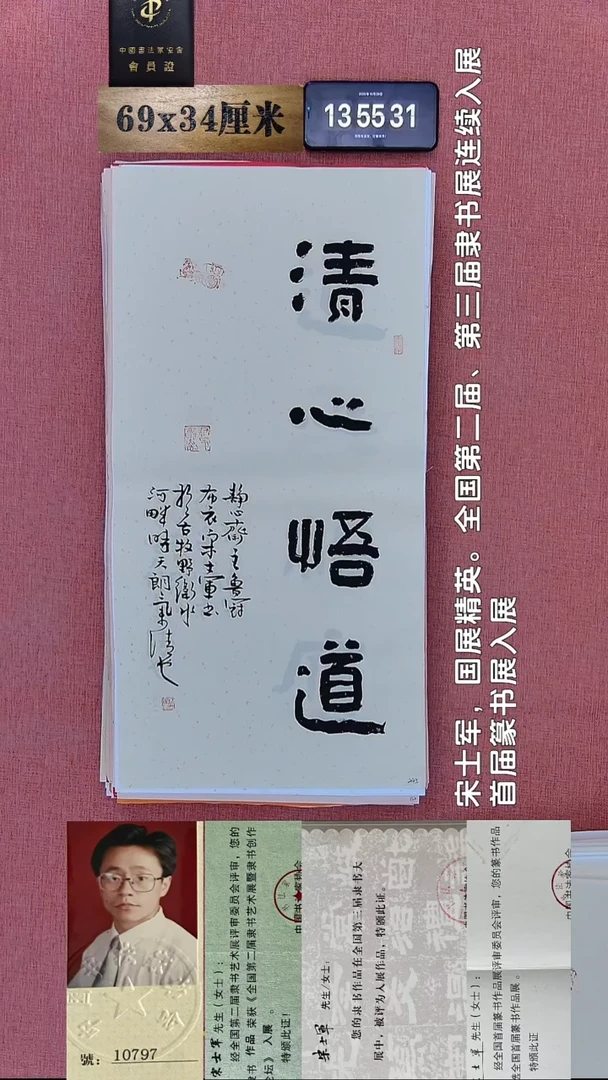 中国书法家协会
会員證
69x34厘米
13 55 31
清心悟道
靜心齋主魯冠
布衣宋士軍書
於古牧野衛水
河畔時天朗氣清也
宋士军，国展精英。全国第二届、第三届隶书展连续入展
首届篆书展入展
10797
宋士军 先生（女士）：
经全国第二届隶书艺术展评审委员会评审，您的
隶书 作品 荣获《全国第二届隶书艺术展暨隶书创作
论坛》入展 。
特颁此证！
宋士军 先生/女士：
您的隶书作品在全国第三届隶书大
展中，被评为入展作品，特颁此证。
士军 先生（女士）：
经全国首届篆书作品展评审委员会评审，您的篆书作品
选全国首届篆书作品展 。
特颁此证